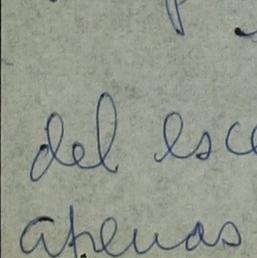 del esc
apenas